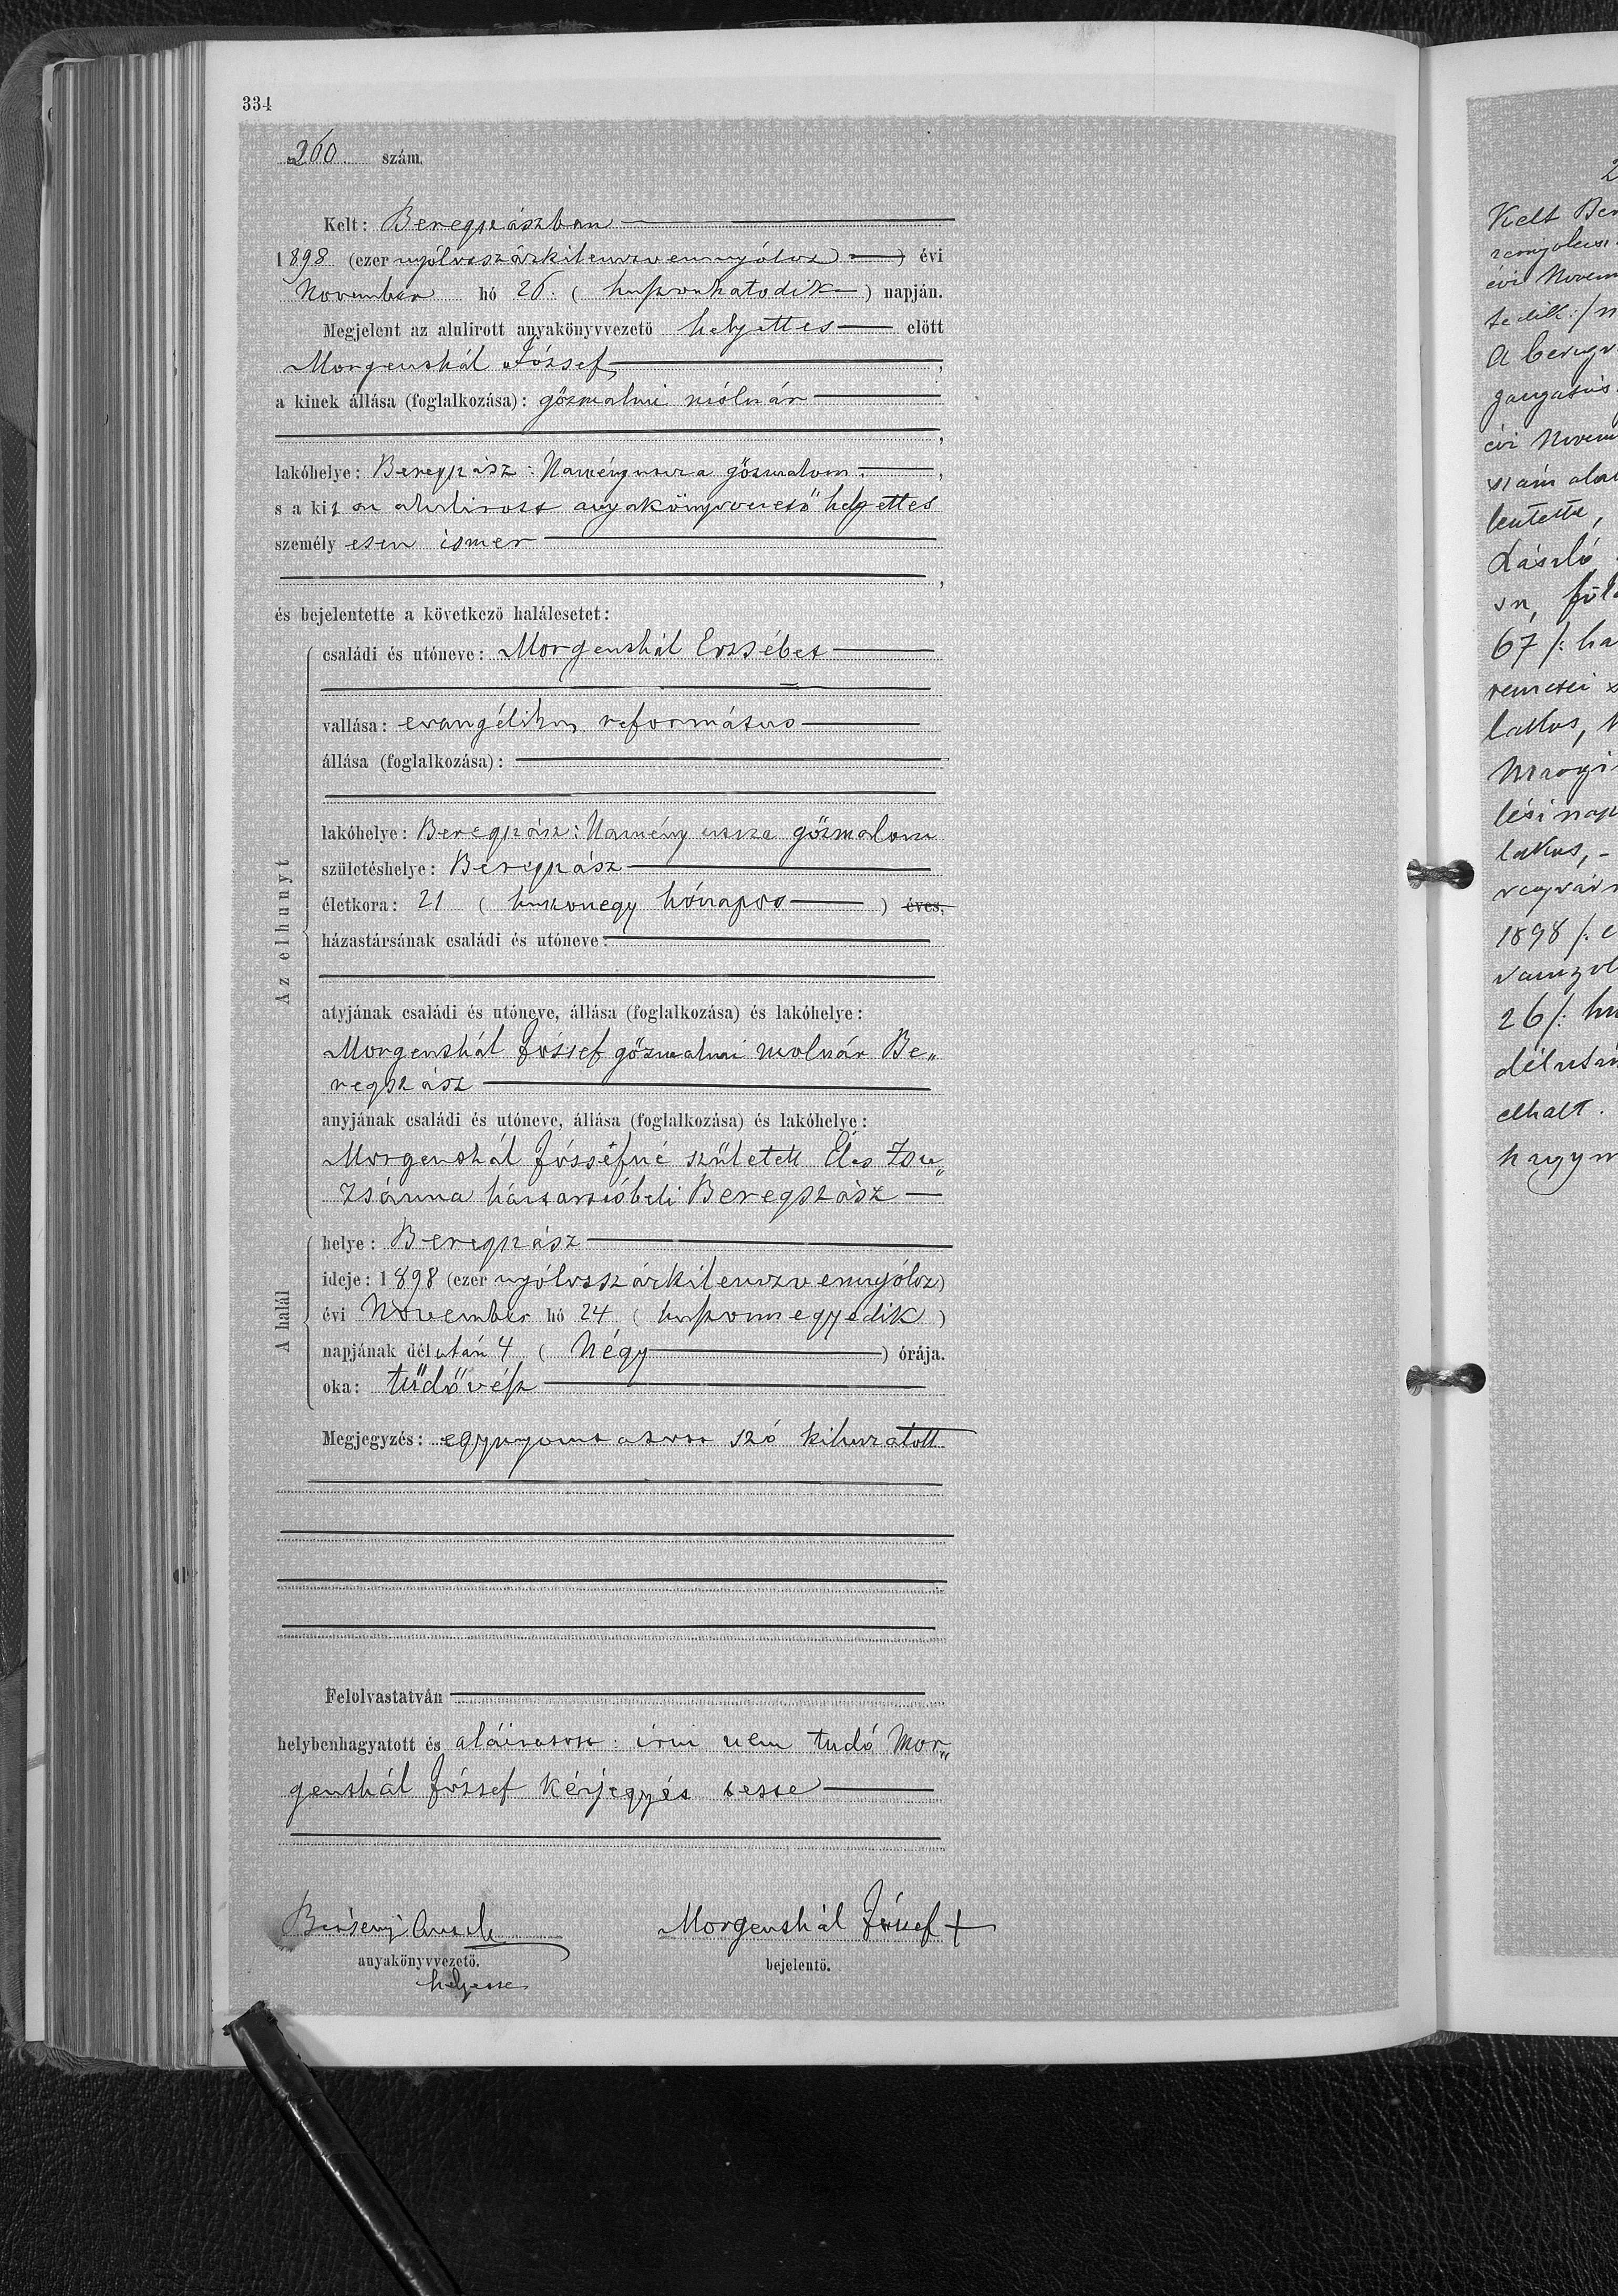 334
260 szám.
Kelt: Beregszászban
1898 (ezer nyólcszázkilenczvennyólcz) évi
November hó 26. (huszonhatodik) napján.
Megjelent az alulirott anyakönyvvezető helyettes előtt
Morgenthál József,
a kinek állása (foglalkozása): gőzmalmi mólnár
,
lakóhelye: Beregszász: Namény utcza gőzmalom,
s a kit az alulirott anyakönyvvezető helyettes
személyesen ismer
,
és bejelentette a következő halálesetet:
Az elhunyt
családi és utóneve: Morgenthál Erzsébet
vallása: evangélikus református
állása (foglalkozása):
lakóhelye: Beregszász: Namény utcza gőzmalom
születéshelye: Beregszász
életkora: 21 (huszonegy hónapos) éves,
házastársának családi és utóneve:
atyjának családi és utóneve, állása (foglalkozása) és lakóhelye:
Morgenthál József gőzmalmi molnár Be„
regszász
anyjának családi és utóneve, állása (foglalkozása) és lakóhelye:
Morgenthál Józséfné született Éles Zsu„
zsánna háztartásbeli Beregszász
A halál
helye: Beregszász
ideje: 1898 (ezer nyólcszázkilenczvennyólcz)
évi November hó 24 (huszonnegyedik)
napjának délután 4 (Négy) órája.
oka: tüdővész
Megjegyzés: egy nyomtatott szó kihuzatott
Felolvastatván
helybenhagyatott és aláiratott: írni nem tudó Mor„
genthál József kézjegyét tette
Morgenthál József +
anyakönyvvezető. bejelentő.
helyettes
Kelt Ber
évi Novem
A beregs
gazgatás
évi Novem
szám ala
lentette,
László
67 /: ha
lakos,
lési nap
lakos, -
1898 /: e
26 /: hu
délután
elhalt.